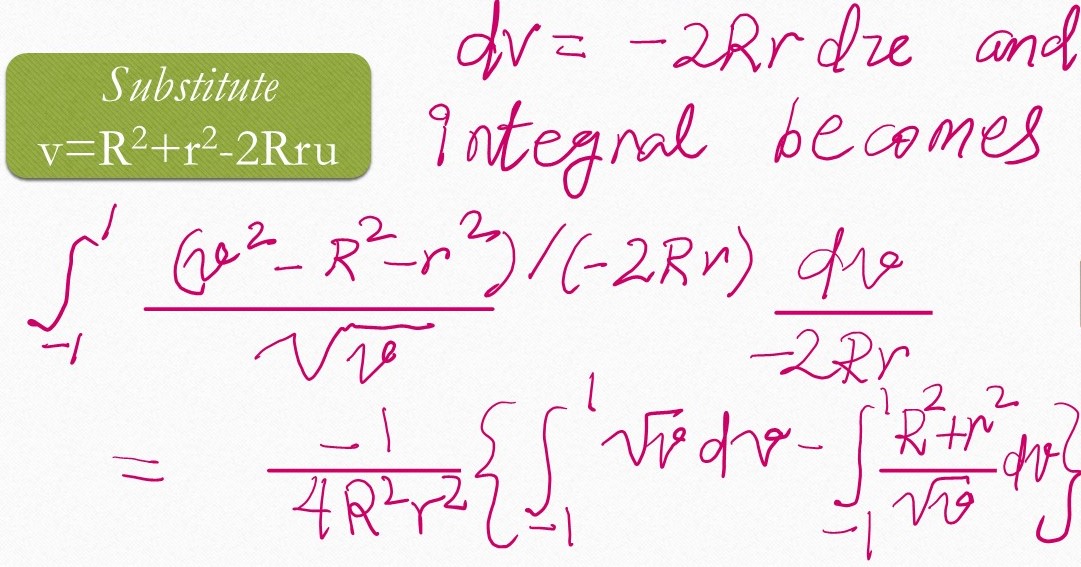 Substitute
v=R²+r²-2Rru
dv = -2Rr du and
integral becomes
∫_{-1}^{1} (v² - R² - r²)/(-2Rr) / √v dv / -2Rr
= -1 / 4R²r² { ∫_{-1}^{1} √v dv - ∫_{-1}^{1} R²+r² / √v dv }